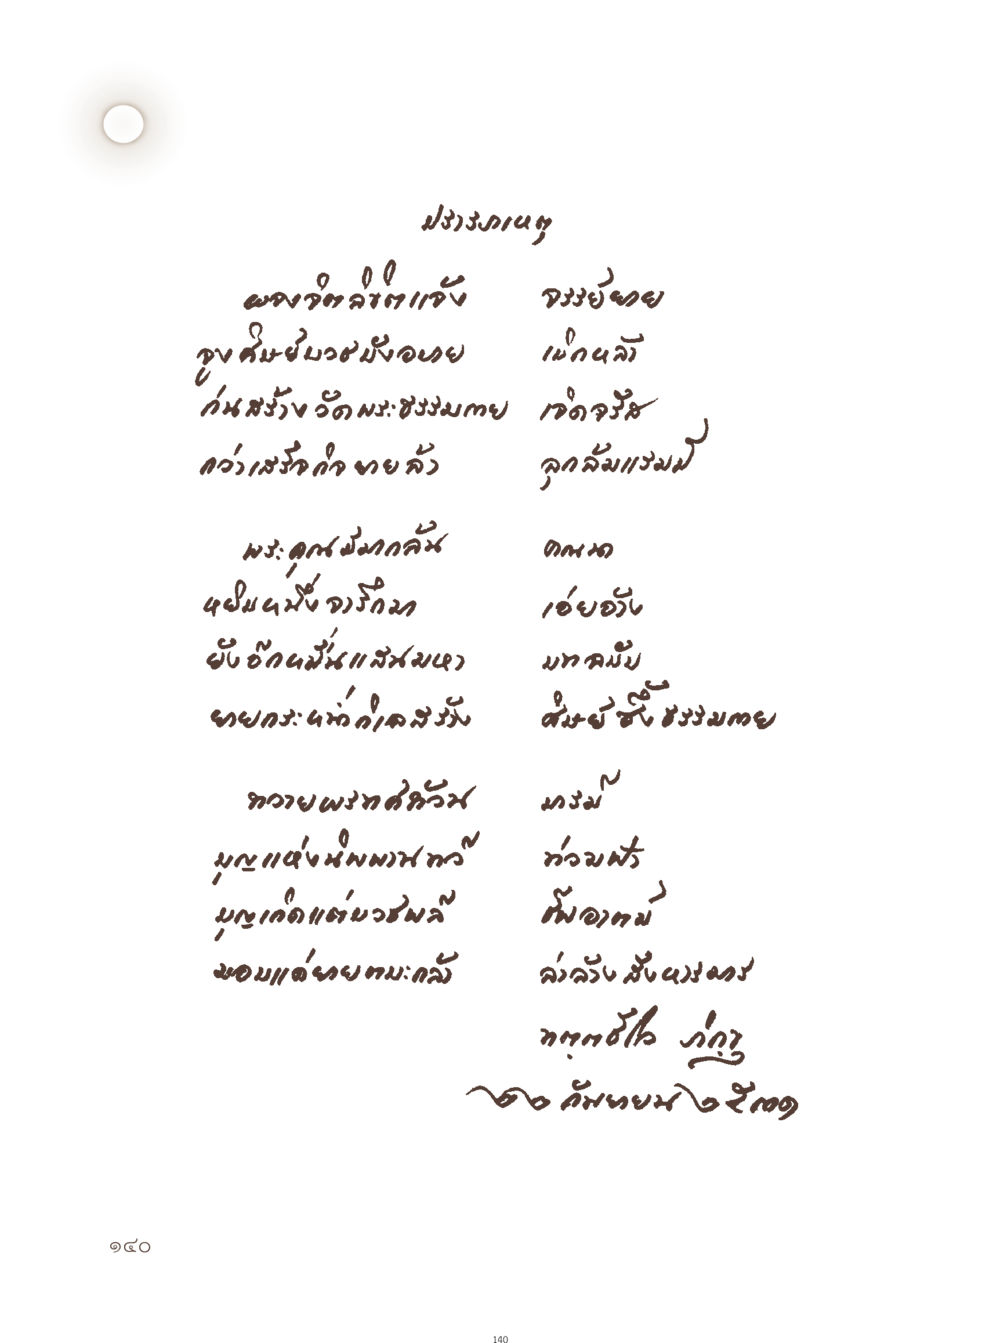 ปรารภเหตุ
ผจงจิตลิขิตแจ้ง จรรย์ยาย
จูงศิษย์บวชมุ่งอบาย เบิกหล้า
ก่นสร้างวัดพระธรรมกาย เจิดจรัส
กว่าเสร็จกิจยายล้า ลุกล้มแรมปี
พระคุณมีมากล้น คณนา
หยิบหนึ่งจารึกมา เอ่ยอ้าง
ยังอีกหมื่นแสนมหา บทฉบับ
ยายกระหน่ำกิเลสร้าง ศิษย์ซึ้งธรรมกาย
ถวายพรทศทิวัน การณ์
บุญแห่งนิพพานทวี ท่วมฟ้า
บุญเกิดแต่บวชพลี ชีพอาตม์
มอบแด่ยายตบะกล้า ล่าล้างสังหารมาร
ทตฺตชีโว ภิกฺขุ
๒๐ กันยายน ๒๕๓๑
๑๔๐
140